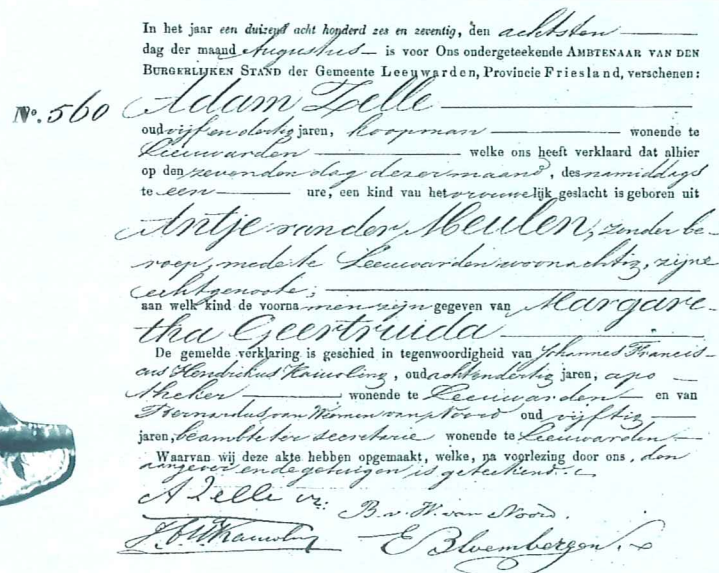 In het jaar een duizend acht honderd zes en zeventig, den achtsten
dag der maand Augustus is voor Ons ondergeteekende AMBTENAAR VAN DEN
BURGERLIJKEN STAND der Gemeente Leeuwarden, Provincie Friesland, verschenen:
No. 560 Adam Zelle
oud vijf en dertig jaren, koopman wonende te
Leeuwarden welke ons heeft verklaard dat alhier
op den zevenden dag dezer maand, des namiddags
te een ure, een kind van het vrouwelijk geslacht is geboren uit
Antje van der Meulen, zonder be-
roep, mede te Leeuwarden woonachtig, zijne
echtgenoote;
aan welk kind de voornamen zijn gegeven van Margare-
tha Geertruida
De gemelde verklaring is geschied in tegenwoordigheid van Johannes Francis-
cus Hendrikus Kauwling, oud acht en dertig jaren, apo
theker wonende te Leeuwarden en van
Bernardus van oud vijftig
jaren, beambte ter secretarie wonende te Leeuwarden
Waarvan wij deze akte hebben opgemaakt, welke, na voorlezing door ons, den
aangever en de getuigen is geteekend.
A Zelle
B. v. W. van Noord.
Kauwling
E Bloembergen